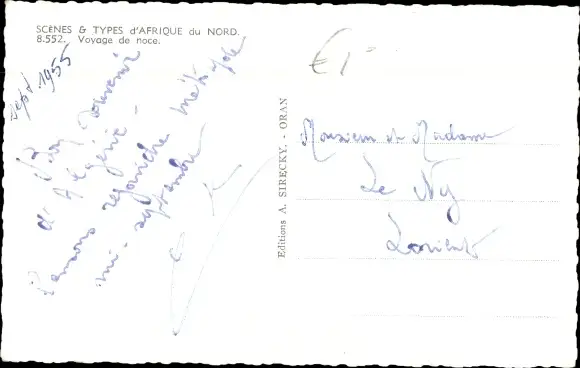 SCÈNES & TYPES d'AFRIQUE du NORD.
8.552. Voyage de noce.
sept. 1955
Bon souvenir
d'Algérie -
Pensons rejoindre Métropole
mi-septembre
€1-
Editions A. SIRECKY. - ORAN
Monsieur et Madame
Le Ny
Lorient